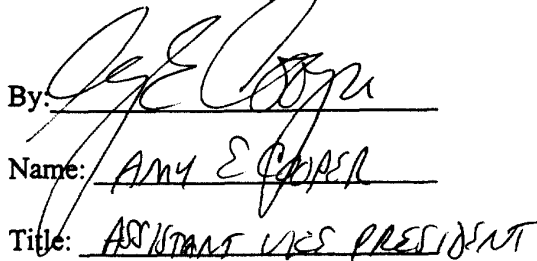 By: Amy E Cooper
Name: AMY E COOPER
Title: ASSISTANT VICE PRESIDENT